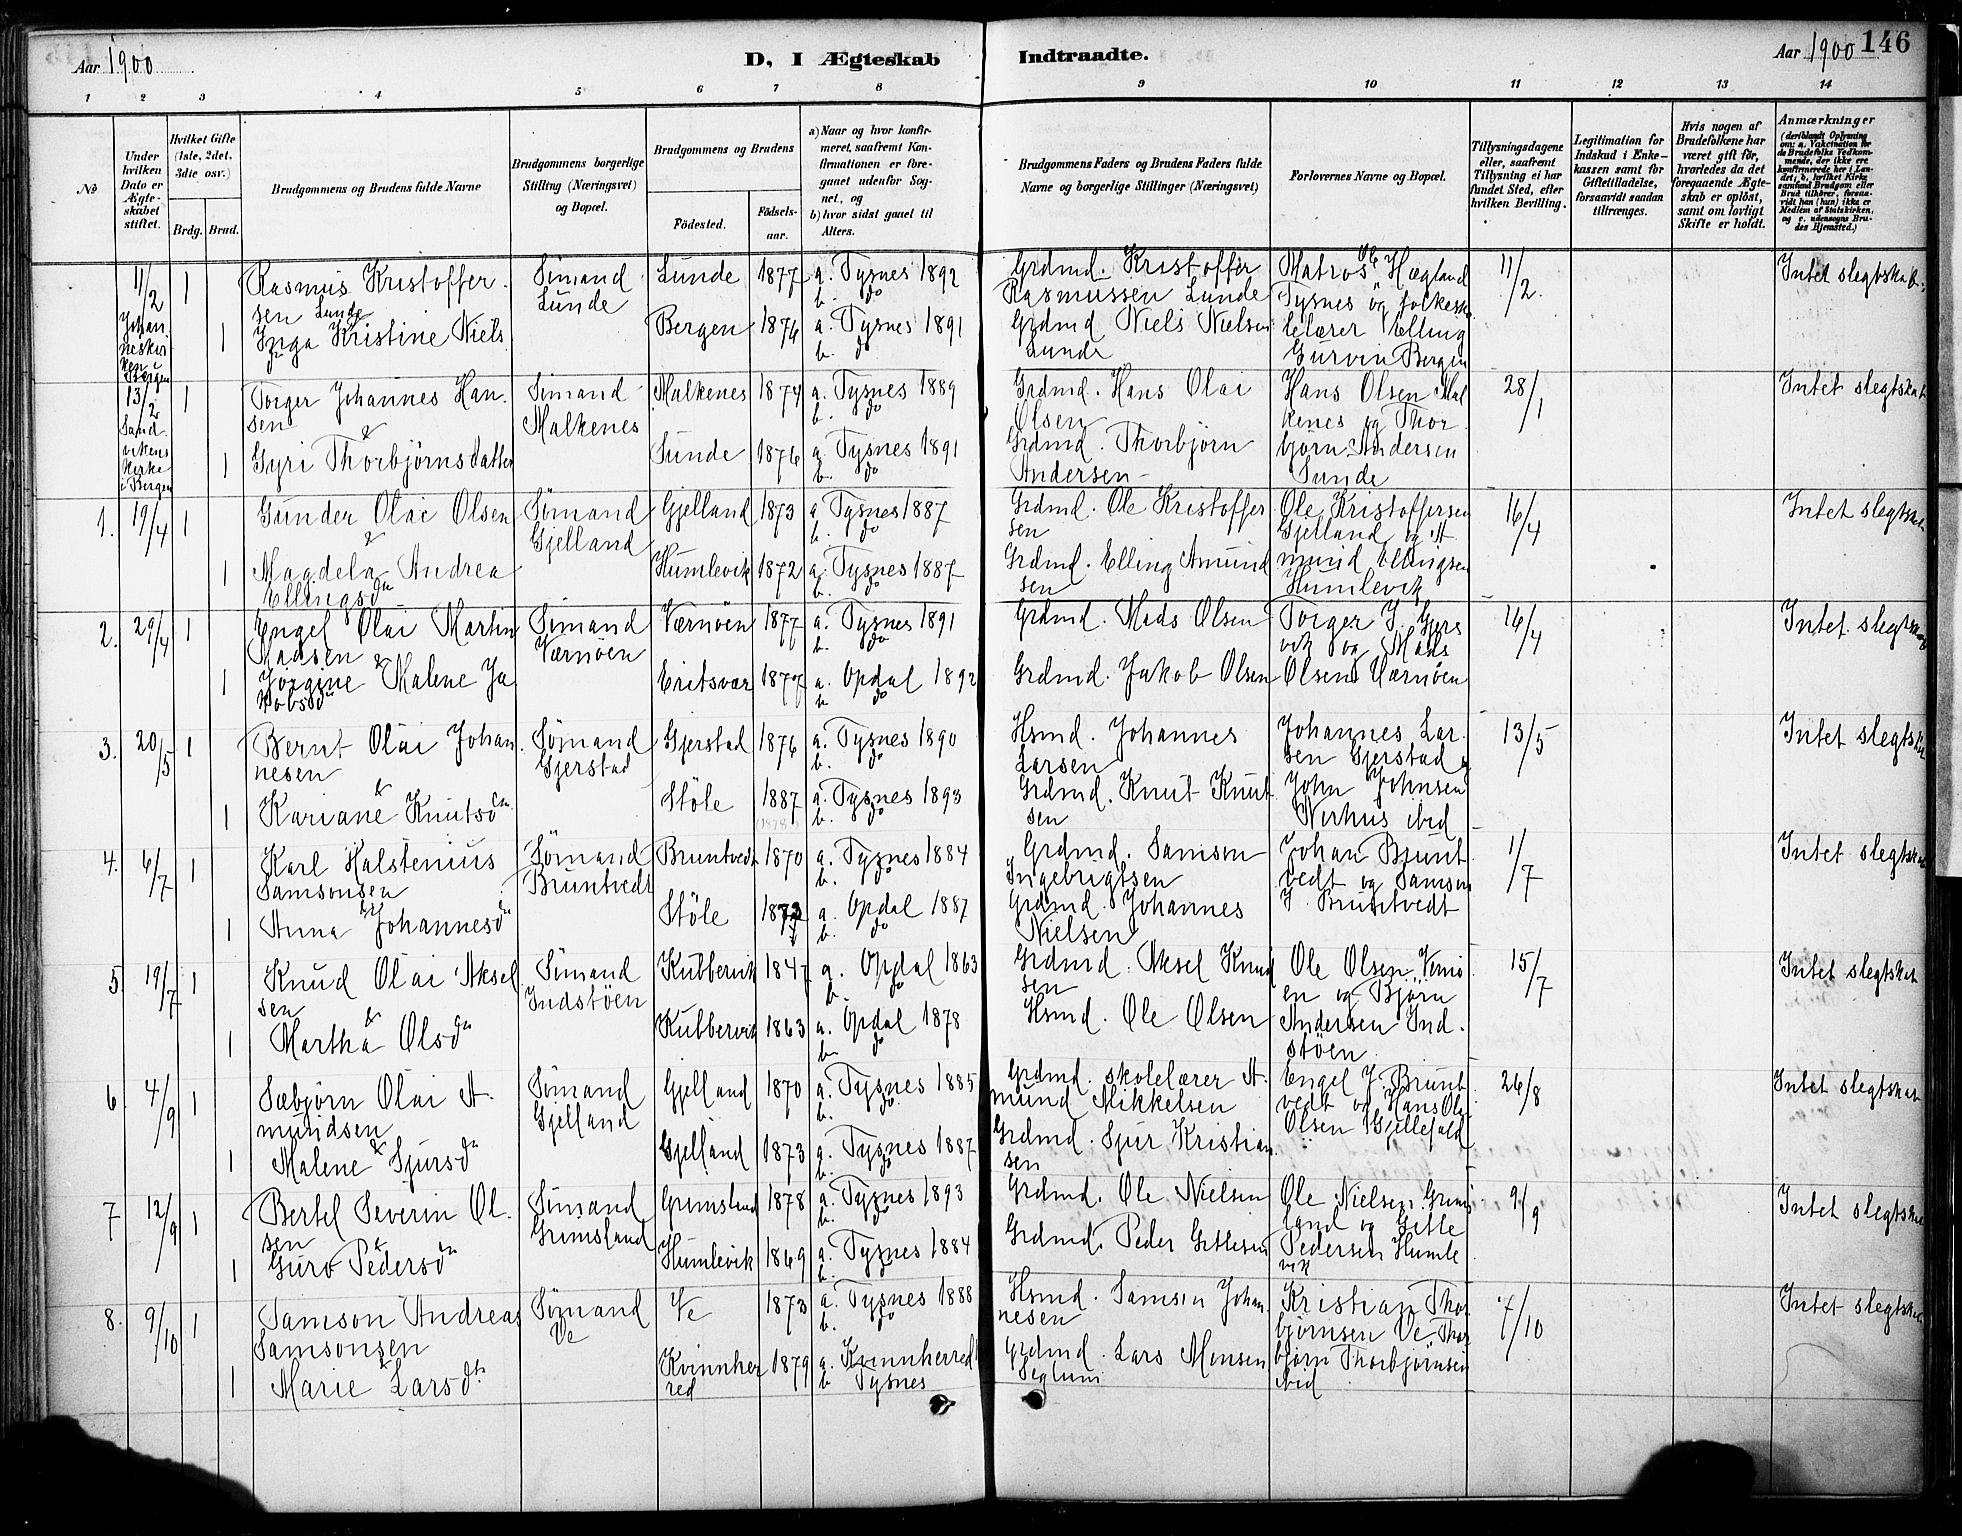 Aar 1900
D, I Ægteskab Indtraadte.
Aar 1900 146
1 2 3 4 5 6 7 8 9 10 11 12 13 14
No
Under hvilken Dato er Ægteskabet stiftet.
Hvilket Gifte (1ste, 2det, 3die osv.)
Brdg. Brud.
Brudgommens og Brudens fulde Navne
Brudgommens borgerlige Stilling (Næringsvei) og Bopæl.
Brudgommens og Brudens
Födested.
Födselsaar.
a) Naar og hvor konfirmeret, saafremt Konfirmationen er foregaaet udenfor Sognet, og
b) hvor sidst gaaet til Alters.
Brudgommens Faders og Brudens Faders fulde Navne og borgerlige Stillinger (Næringsvei)
Forlovernes Navne og Bopæl.
Tillysningsdagene eller, saafremt Tillysning ei har fundet Sted, efter hvilken Bevilling.
Legitimation for Indskud i Enkekassen samt for Giftetilladelse, forsaavidt saadan tiltrænges.
Hvis nogen af Brudefolkene har været gift för, hvorledes da det foregaaende Ægteskab er oplöst, samt om lovligt Skifte er holdt.
Anmærkninger
(deriblandt Oplysning om: a. Vakcination for de Brudefolks Vedkommende, der ikke ere konfirmerede her i Landet; b. hvilket Kirkesamfund Brudgom eller Brud tilhörer, forsaavidt han (hun) ikke er Medlem af Statskirken, og c. udensogns Brudes Hjemsted.)
11/2 Johanneskirken i Bergen
1 Rasmus Kristoffersen Lunde
Sömand Lunde
Lunde 1877 a. Tysnes 1892 b. do
Grdmd. Kristoffer Rasmussen Lunde
Matros Ole Hægland Tysnes og folkeskolelærer Elling Gurvin Bergen
11/2.
Intet slegtskab.
1 Inga Kristine Niels
Bergen 1876 a. Tysnes 1891 b. do
Grdmd Niels Nielsen Lunde
13/2 Sandvikens Kirke i Bergen
1 Torger Johannes Hansen &
Sömand Malkenes
Malkenes 1874 a. Tysnes 1889 b. do
Grdmd. Hans Olai Olsen
Hans Olsen Malkenes og Thorbjörn Andersen Sunde
28/1
Intet slegtskab
1 Gyri Thorbjörnsdatter
Sunde 1876 a. Tysnes 1891 b. do
Grdmd. Thorbjörn Andersen
1. 19/4 1 Gunder Olai Olsen &
Sømand Gjelland
Gjelland 1873 a Tysnes 1887 b. do
Grdmd. Ole Kristoffersen
Ole Kristoffersen Gjelland og Amund Ellingsen Humlevik
16/4
Intet slegtskab
1 Magdela Andrea Ellingsdn
Humlevik 1872 a. Tysnes 1887 b. do
Grdmd. Elling Amundsen
2. 29/4 1 Engel Olai Martin Madsen &
Sömand Værnöen
Værnöen 1877 a. Tysnes 1891 b. do
Grdmd. Mads Olsen
Torger J. Gjersvik og Mads Olsen Værnöen
16/4
Intet slegtskab
1 Jörgine Malene Jakobsdn
Eritsvær 1877 a. Opdal 1892 b do
Grdmd. Jakob Olsen
3. 20/5 1 Bernt Olai Johannesen &
Sømand Gjerstad
Gjerstad 1876 a. Tysnes 1890 b. do
Hsmd. Johannes Larsen
Johannes Larsen Gjerstad og John Johnsen Nerhus ibid
13/5
Intet slegtskab
1 Kariane Knutsdn
Stöle 1887 a. Tysnes 1893 b. do
Grdmd. Knut Knutsen
4. 6/7 1 Karl Halstenius Samsonsen &
Sømand Bruntvedt
Bruntvedt 1870 a. Tysnes 1884 b. do
Grdmd. Samson Ingebrigtsen
Johan Bruntvedt og Samson J. Bruntvedt
1/7
Intet slegtskab
1 Anna Johannesdn
Stöle a. Opdal 1887 b. do
Grdmd. Johannes Nielsen
5. 19/7 1 Knud Olai Akselsen &
Sömand Indstöen
Kubbervik 1847 a. Opdal 1863 b. do
Grdmd. Aksel Knudsen
Ole Olsen Vernöen og Björn Andersen Indstöen
15/7
Intet slegtskab
1 Martha Olsdn
Kubbervik 1863 a. Opdal 1878 b. do
Hsmd. Ole Olsen
6. 4/9 1 Sæbjörn Olai Amundsen &
Sømand Gjelland
Gjelland 1870 a. Tysnes 1885 b. do
Grdmd. skolelærer Amund Mikkelsen
Engel J. Bruntvedt og Hans Ole Olsen Gjellefald
26/8
Intet slegtskab
1 Malene Sjursdn
Gjelland 1873 a. Tysnes 1887 b. do
Grdmd. Sjur Kristiansen
7 12/9 1 Bertel Severin Olsen &
Sömand Grimsland
Grimsland 1878 a. Tysnes 1893 b. do
Grdmd. Ole Nielsen
Ole Nielsen Grimsland og Gitle Pedersen Humlevik
9/9
Intet slegtskab
1 Guro Pedersdn
Humlevik 1869 a. Tysnes 1884 b.
Grdmd. Peder Gitlesen
8. 9/10 1 Samson Andreas Samsonsen &
Sømand Ve
Ve 1873 a. Tysnes 1888 b. do
Hsmd. Samson Johannesen
Kristian Thorbjörnsen Ve, Thorbjörn Thorbjörnsen ibid
7/10
Intet slegtskab
1 Marie Larsdtr
Kvinnherred 1879 a. Kvinnherred b Tysnes
Grdmd. Lars Monsen Seglum